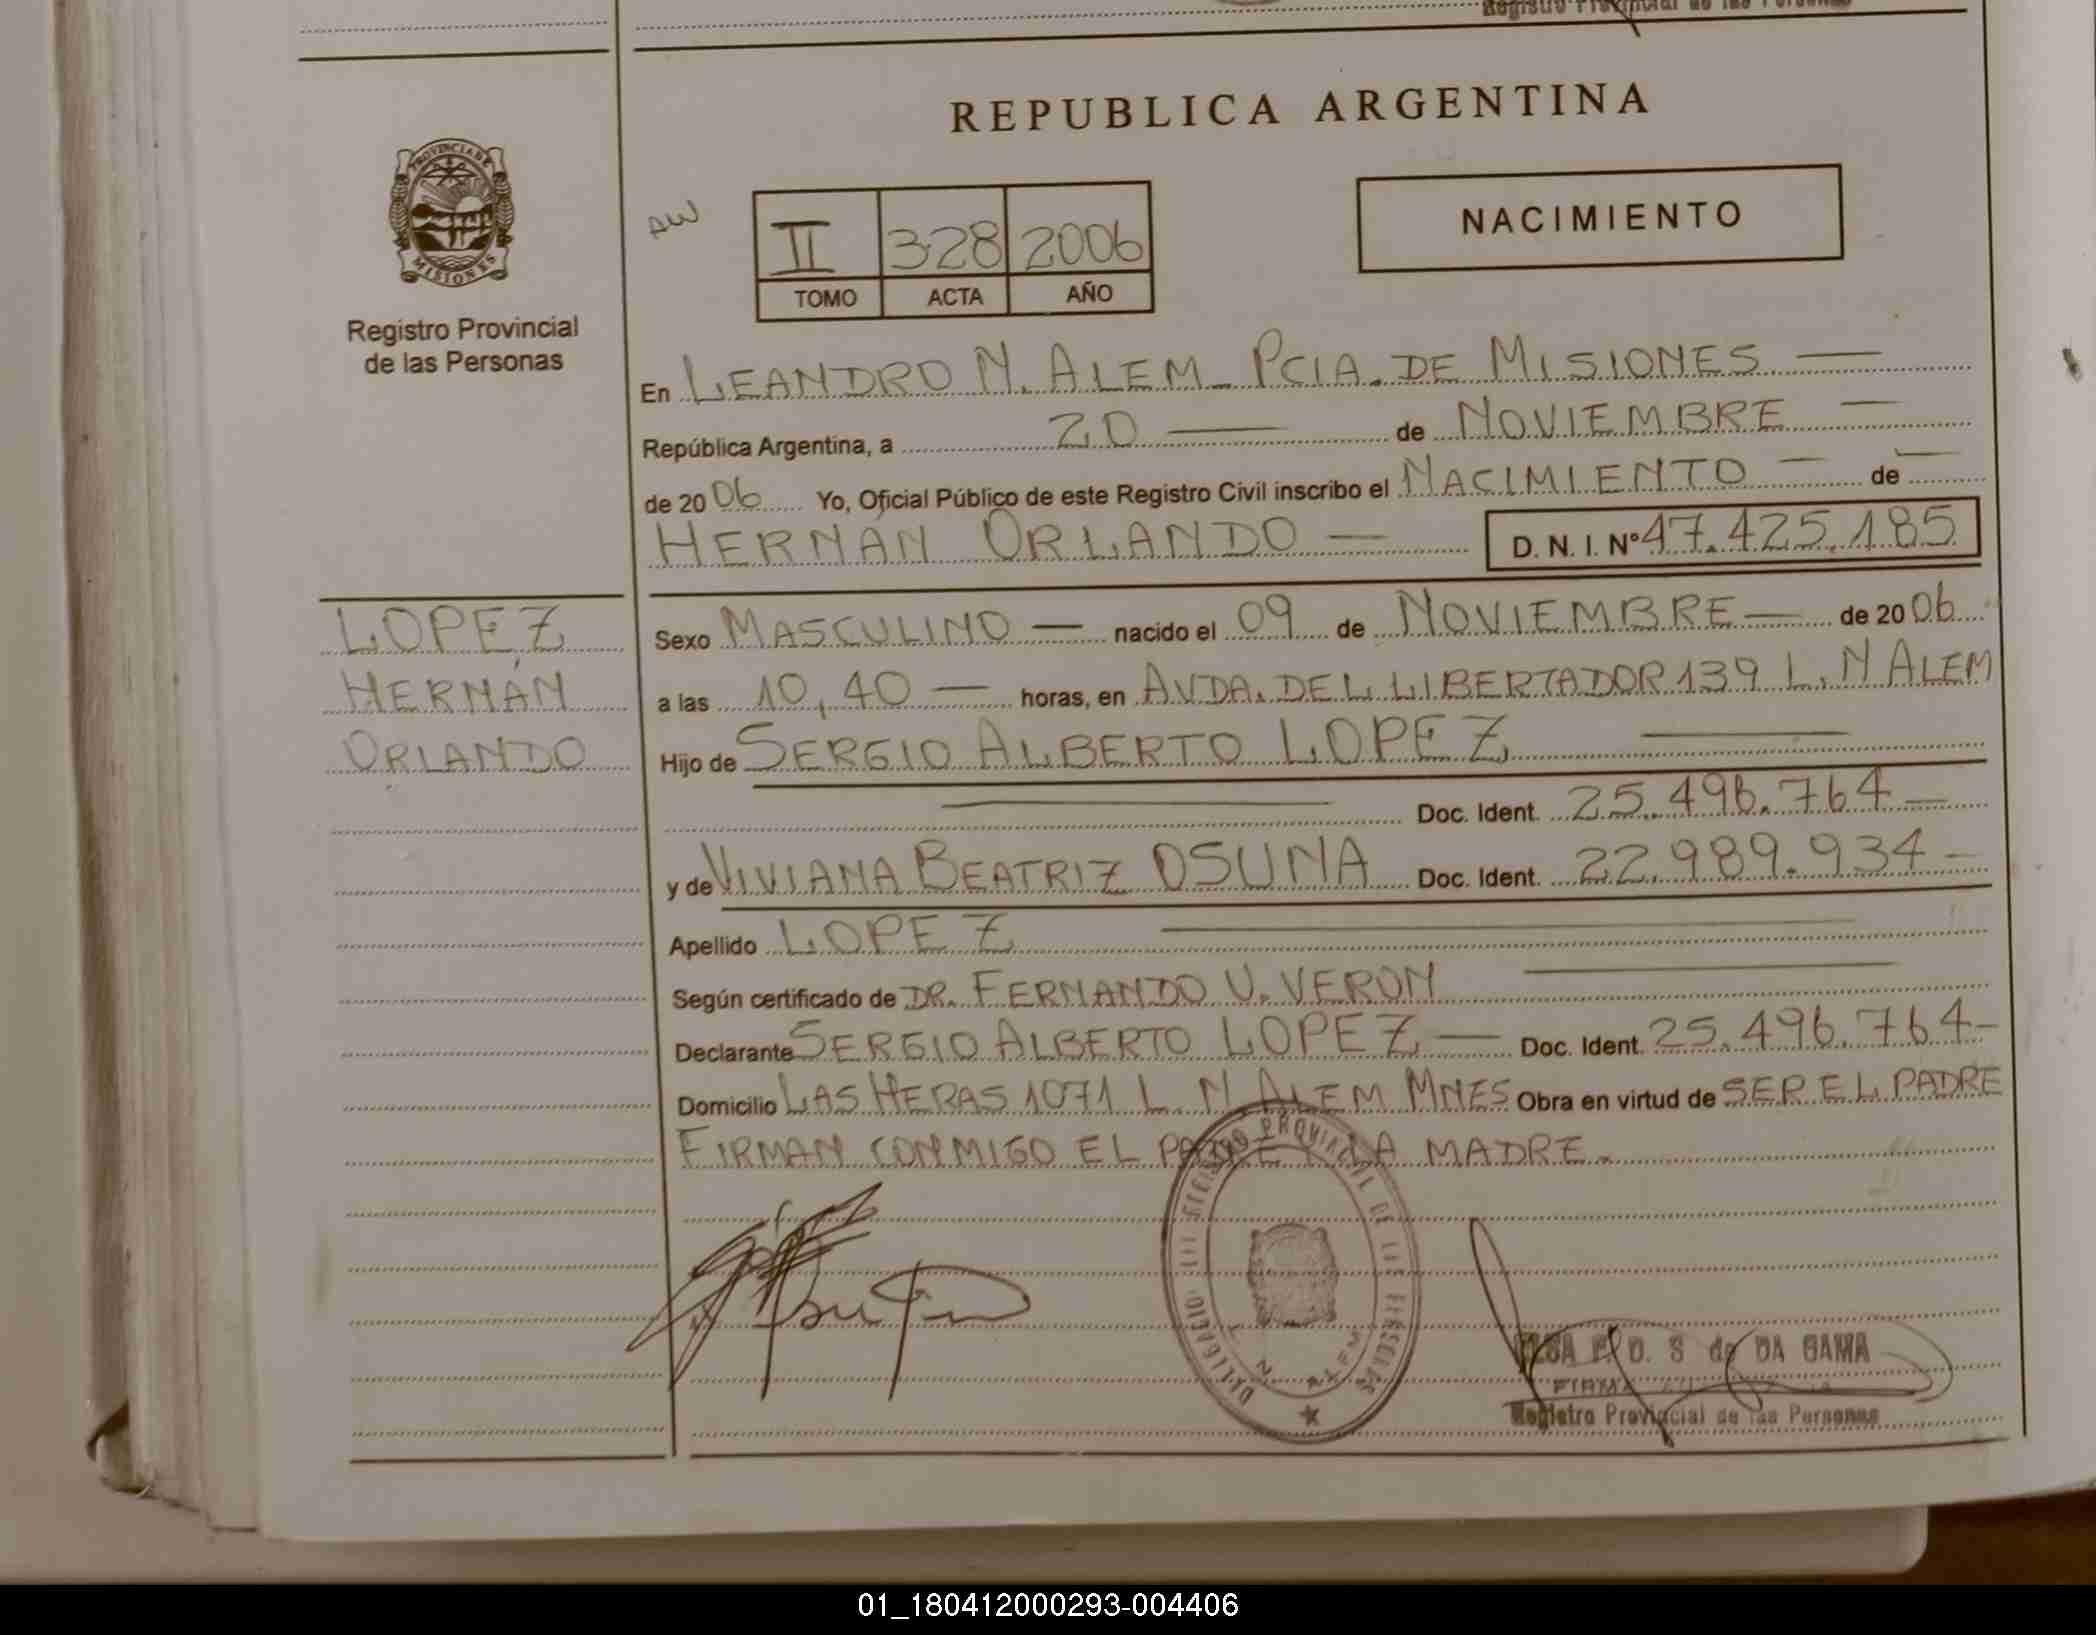 Registro Provincial de las Personas
REPUBLICA ARGENTINA
PROVINCIA DE
MISIONES
Registro Provincial
de las Personas
AW
II 328 2006
TOMO ACTA AÑO
NACIMIENTO
En LEANDRO N. ALEM - PCIA. DE MISIONES —
República Argentina, a 20 — de NOVIEMBRE —
de 2006 Yo, Oficial Público de este Registro Civil inscribo el NACIMIENTO — de —
HERNAN ORLANDO — D. N. I. Nº 47.425.185
LOPEZ
HERNÁN
ORLANDO
Sexo MASCULINO — nacido el 09 de NOVIEMBRE — de 2006
a las 10,40 — horas, en AVDA. DEL LIBERTADOR 139 L. N ALEM
Hijo de SERGIO ALBERTO LOPEZ —
— Doc. Ident. 25.496.764 —
y de VIVIANA BEATRIZ OSUNA Doc. Ident. 22.989.934 —
Apellido LOPEZ —
Según certificado de DR. FERNANDO V. VERON —
Declarante SERGIO ALBERTO LOPEZ — Doc. Ident. 25.496.764 —
Domicilio LAS HERAS 1071 L. N ALEM MNES Obra en virtud de SER EL PADRE
FIRMAN CONMIGO EL PADRE Y LA MADRE.
REGISTRO PROVINCIAL DE LAS PERSONAS
L. N. ALEM
DA GAMA
FIRMA
Registro Provincial de las Personas
01_180412000293-004406